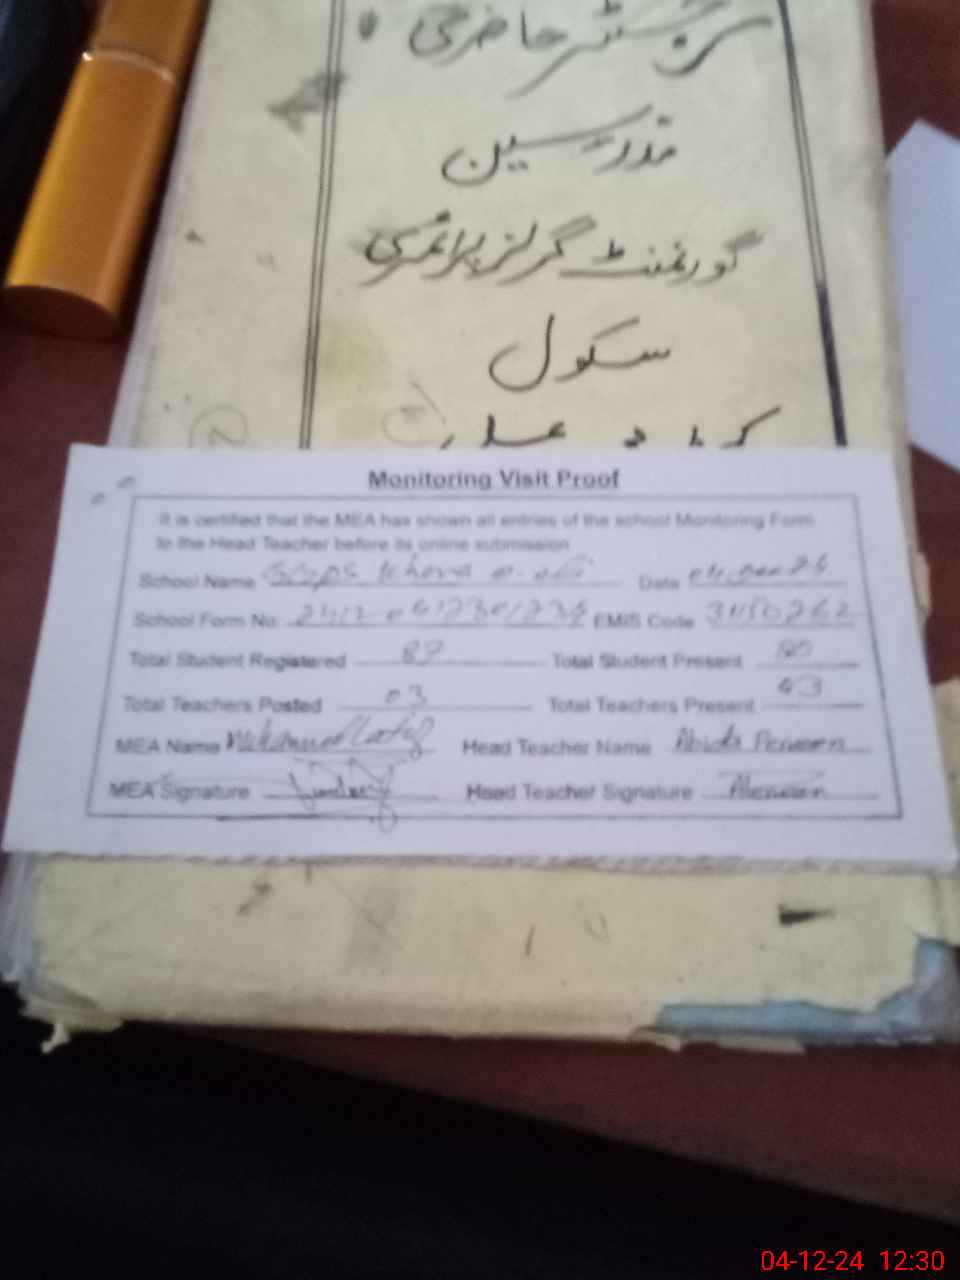 رجسٹر حاضری
مدرسین
گورنمنٹ گرلز پرائمری
سکول
Monitoring Visit Proof
It is certified that the MEA has shown all entries of the school Monitoring Form
to the Head Teacher before its online submission
School Name GGPS Date 04.Dec 24
School Form No. EMIS Code
Total Student Registered 87 Total Student Present 80
Total Teachers Posted 03 Total Teachers Present 03
MEA Name Head Teacher Name Abida Perveen
MEA Signature Head Teacher Signature
04-12-24 12:30